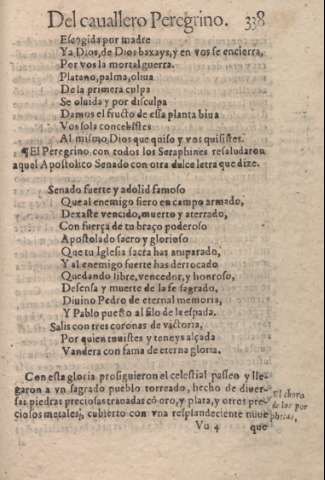 Del cauallero Peregrino. 338
Escogida por madre
Ya Dios, de Dios baxays, y en vos se encierra,
Por vos la mortal guerra.
Platano, palma, oliua
De la primera culpa
Se oluida y por disculpa
Damos el fructo de essa planta biua
Vos sola concebistes
Al mismo, Dios que quiso y vos quisistes.
¶El Peregrino con todos los Seraphines resaludaron
a aquel Apostolico Senado con otra dulce letra que dize.
Senado fuerte y adolid famoso
Que al enemigo fiero en campo armado,
Dexaste vencido, muerto y aterrado,
Con fuerça de tu braço poderoso
Apostolado sacro y glorioso
Que tu Iglesia sacra has amparado,
Y al enemigo fuerte has derrocado
Quedando libre, vencedor, y honroso,
Defensa y muerte de la fe sagrado,
Diuino Pedro de eternal memoria,
Y Pablo puesto al filo de la espada.
Salis con tres coronas de victoria,
Por quien touistes y teneys alçada
Vandera con fama de eterna gloria.
Con esta gloria prosiguieron el celestial passeo y lle-
garon a vn sagrado pueblo torreado, hecho de diuer-
sas piedras preciosas trauadas cõ oro, y plata, y otros pre-
ciosos metales, cubierto con vna resplandeciente nuue
El choro
de los pro
phetas,
Vu 4 que